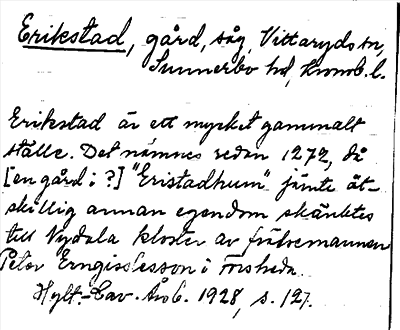 Erikstad, gård, såg, Vittaryds sn,
Sunnerbo hd, Kronob. l.
Erikstad är ett mycket gammalt
ställe. Det nämnes redan 1272, då
[en gård i ?] "Eristadhum" jämte åt-
skillig annan egendom skänktes
till Nydala kloster av frälsemannen
Peter Erngisslesson i Forsheda.
Hylt.-Cav. Årsb. 1928, s. 127.